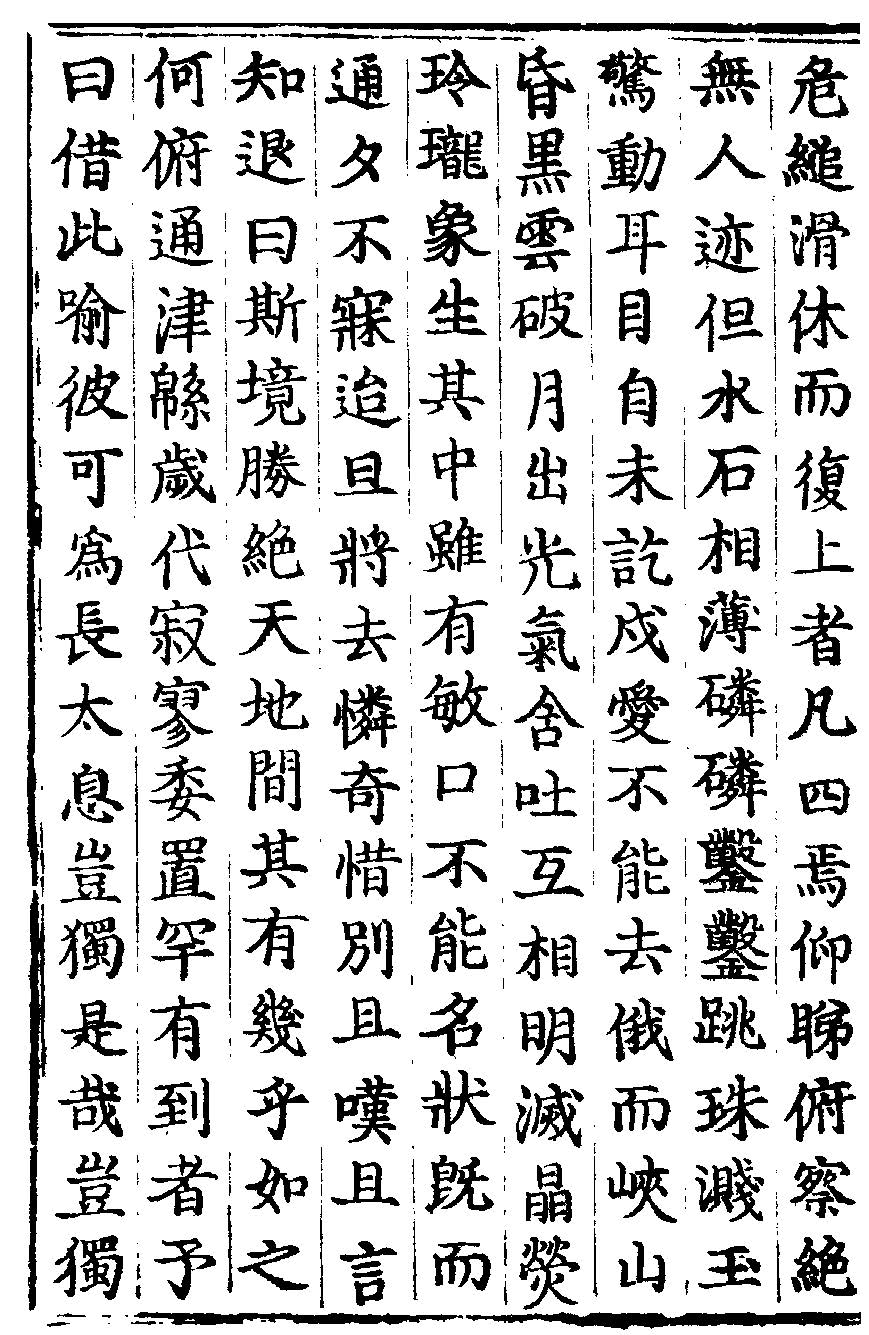 危縋滑休而復上者凡四焉仰睇俯察絶
無人迹但水石相薄磷磷鑿鑿跳珠濺玉
驚動耳目自未訖戍愛不能去俄而峽山
昏黑雲破月出光氣含吐互相明滅晶熒
玲瓏象生其中雖有敏口不能名狀旣而
通夕不寐迨旦將去憐奇惜別且嘆且言
知退曰斯境勝絶天地間其有幾乎如之
何俯通津緜歲代寂寥委置罕有到者予
曰借此喻彼可爲長太息豈獨是哉豈獨